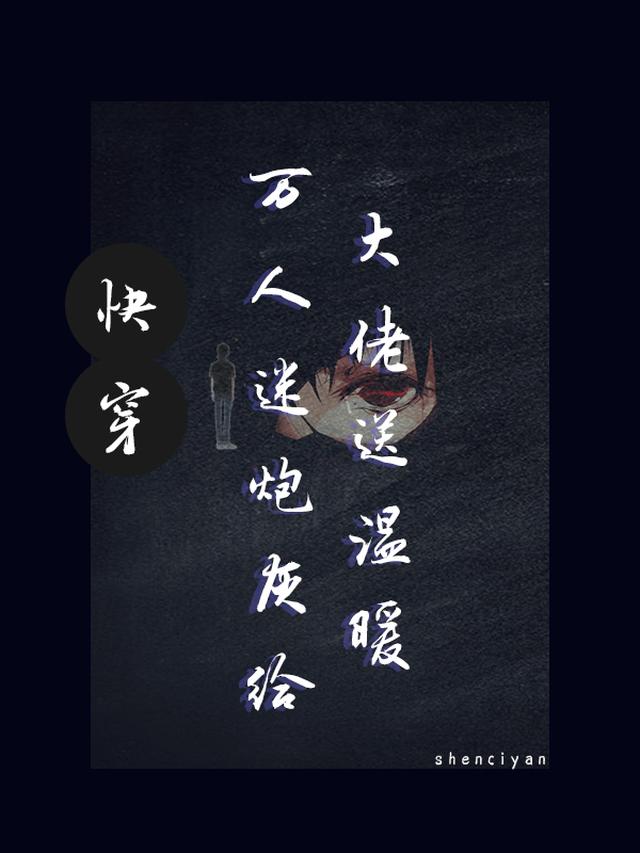 快穿
万人迷炮灰给
大佬送温暖
shenciyan